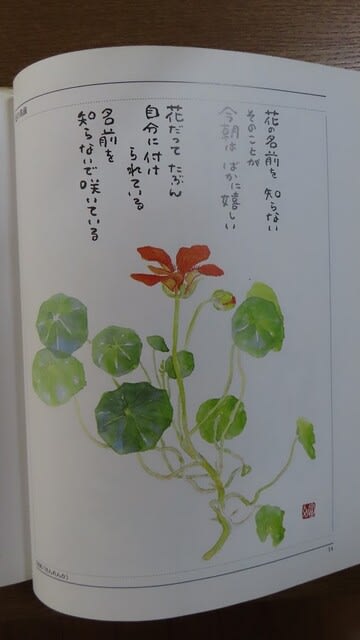 花の名前を 知らない
そのことが
今朝は ばかに嬉しい
花だって たぶん
自分に付け
られている
名前を
知らないで 咲いている
14